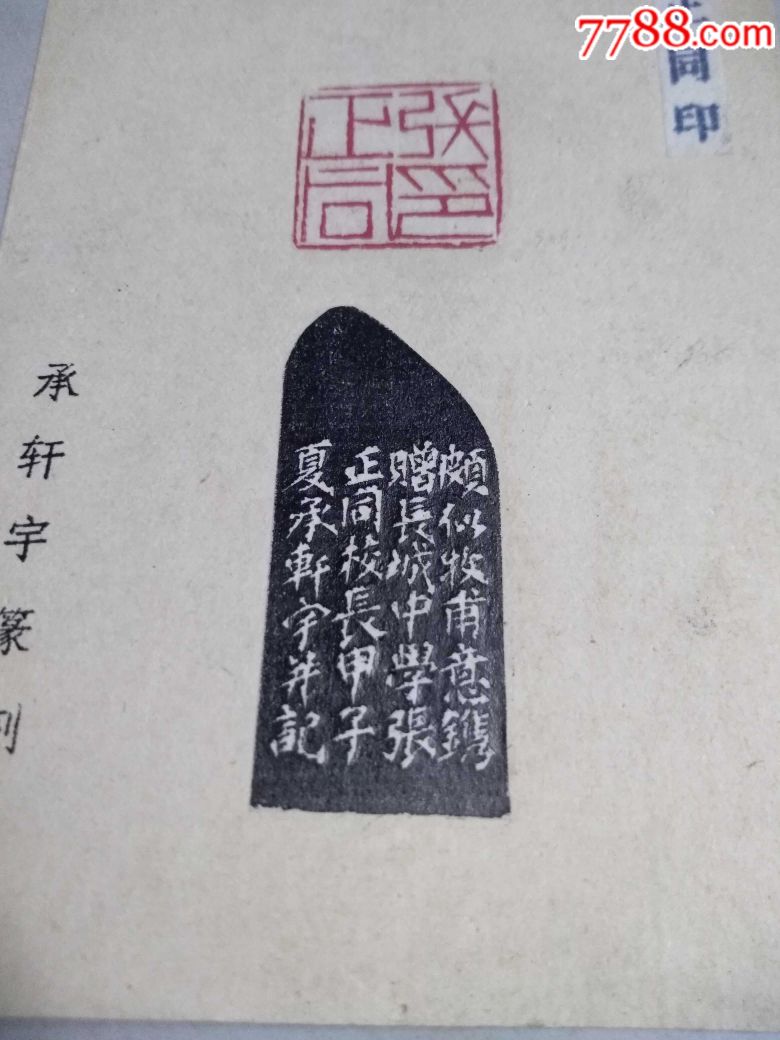 7788.com
同印
张印
正同
頗似牧甫意鐫
贈長城中學張
正同校長甲子
夏承軒宇并記
承轩宇篆刻